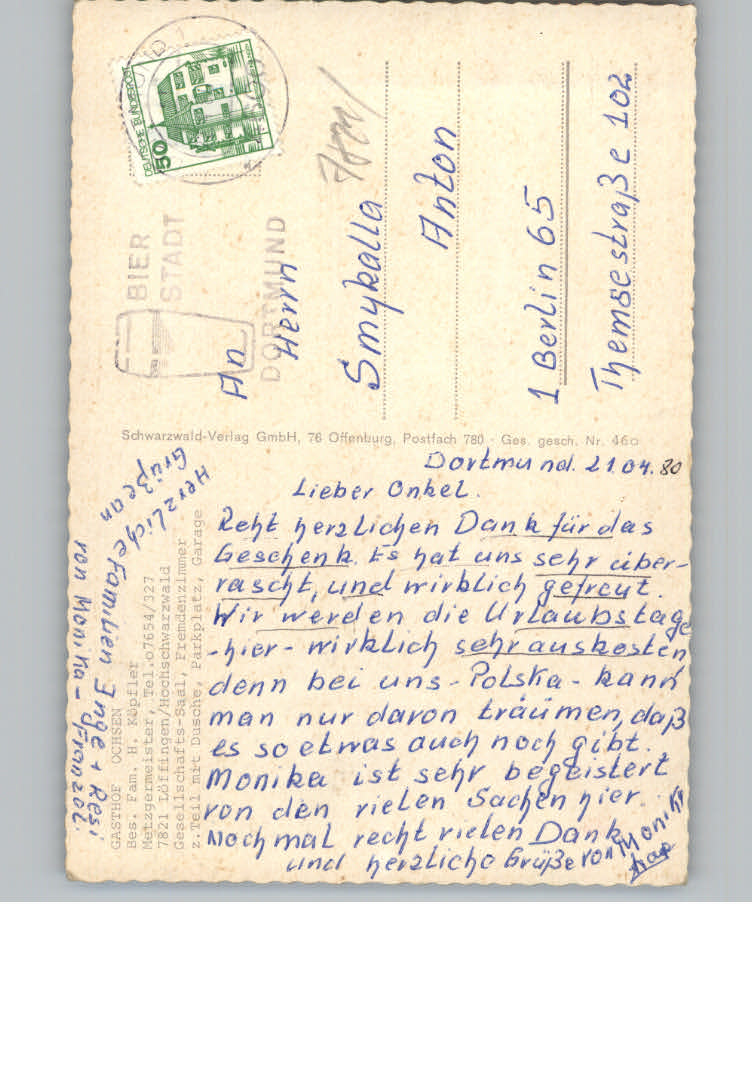 DEUTSCHE BUNDESPOST
50
BIER
STADT
DORTMUND
An
Herrn
Smykalla
Anton
1 Berlin 65
Themsestraße 102
Schwarzwald-Verlag GmbH, 76 Offenburg, Postfach 780 · Ges. gesch. Nr. 460
Dortmund. 21.04.80
Lieber Onkel.
Reht herzlichen Dank für das
Geschenk. Es hat uns sehr über-
rascht, und wirklich gefreut.
Wir werden die Urlaubstage
-hier- wirklich sehr auskosten
denn bei uns - Polska - kann
man nur davon träumen, daß
es so etwas auch noch gibt.
Monika ist sehr begeistert
von den vielen Sachen hier.
Nochmal recht vielen Dank
und herzliche Grüße von Monika
Herzliche
Grüße an
Familien Inge + Resi
von Monika - Franzol.
GASTHOF OCHSEN
Bes. Fam. H. Köpfler
Metzgermeister, Tel.07654/327
7821 Löffingen/Hochschwarzwald
Gesellschafts-Saal, Fremdenzimmer
z. Teil mit Dusche, Parkplatz, Garage